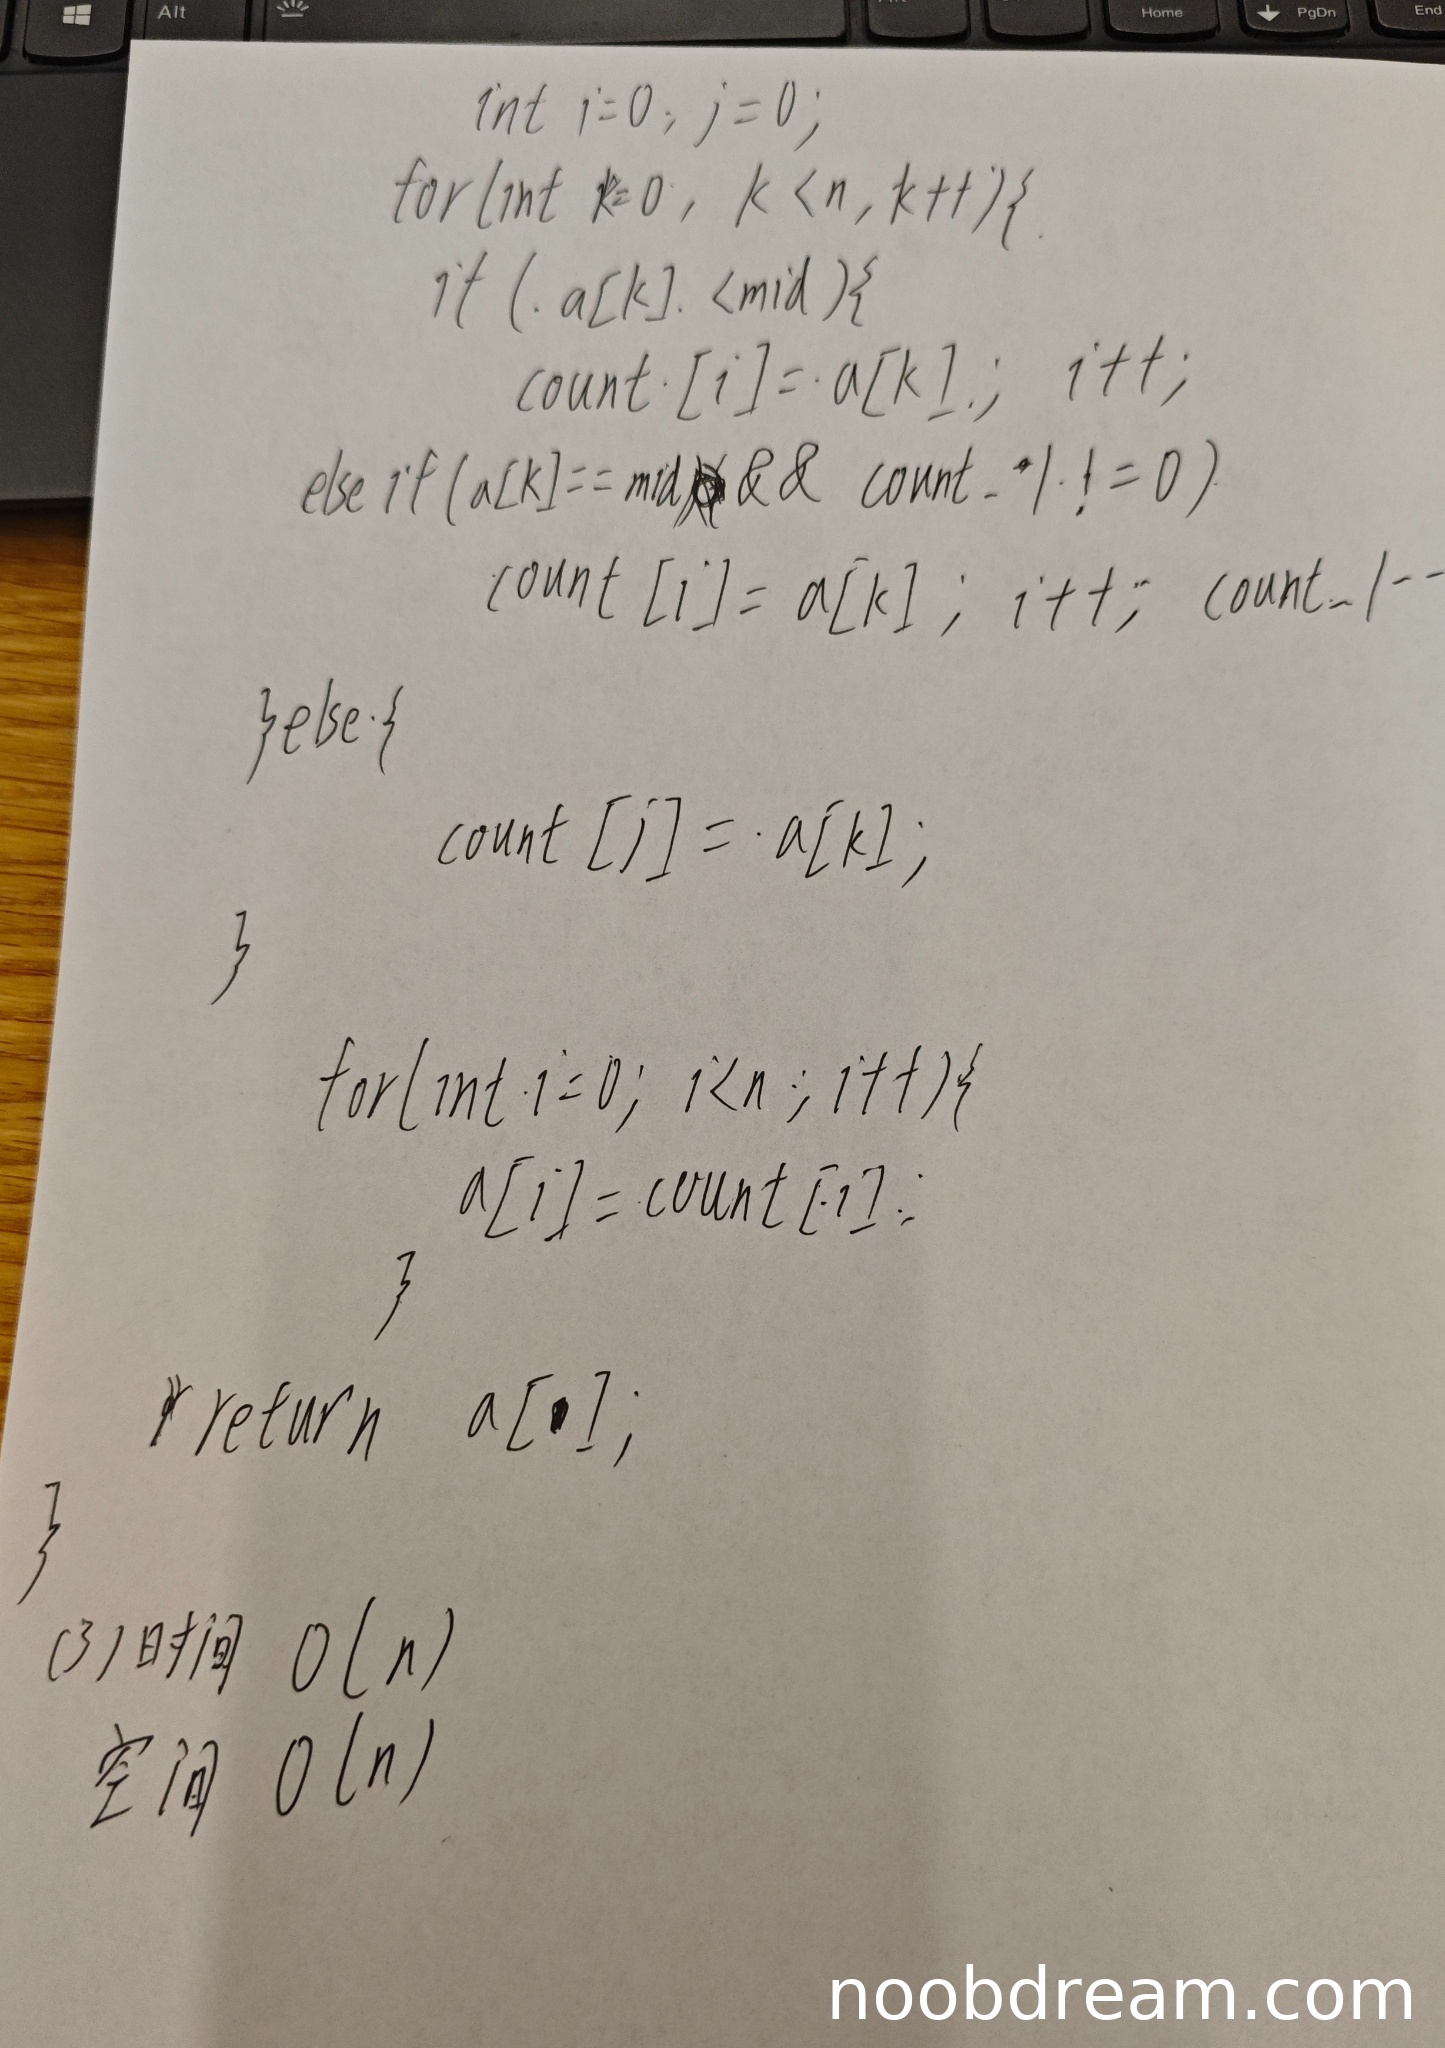 Alt
Home
PgDn
End
int i=0, j=0;
for(int k=0, k<n, k++){
if (a[k]<mid){
count[i]=a[k]; i++;
else if(a[k]==mid && count_1!=0)
count[i]=a[k]; i++; count_1--
}else{
count[j]=a[k];
}
for(int i=0; i<n; i++){
a[i]=count[i];
}
return a[];
}
(3)时间 O(n)
空间 O(n)
noobdream.com